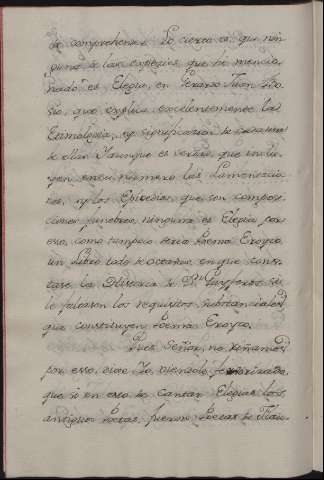 de comprehender. Lo cierto es, que nin-
guna de las especies que he mencio-
nado es Elegia, en Gerardo Juan Vo-
sio, que explica excelentemente la
Etimologia, y significacion de
de ellas. Y aunque es verdad, que inclu-
yen en su numero las Lamentacio-
nes, y los Epicedios, que son composi-
ciones funebres, ninguna es Elegia por
esso, como tampoco seria Poema Eroyco,
un Libro todo de octavas, en que conta-
sse la Historia de Dn. Gayferos si
le faltasen los requisitos substanciales
que constituyen Poema Eroyco.
Pues Señor, no riñamos
por esso, dixe Yo, viendole
que si en esto de cantar Elegias los
antiguos Poetas, fueron Poetas de